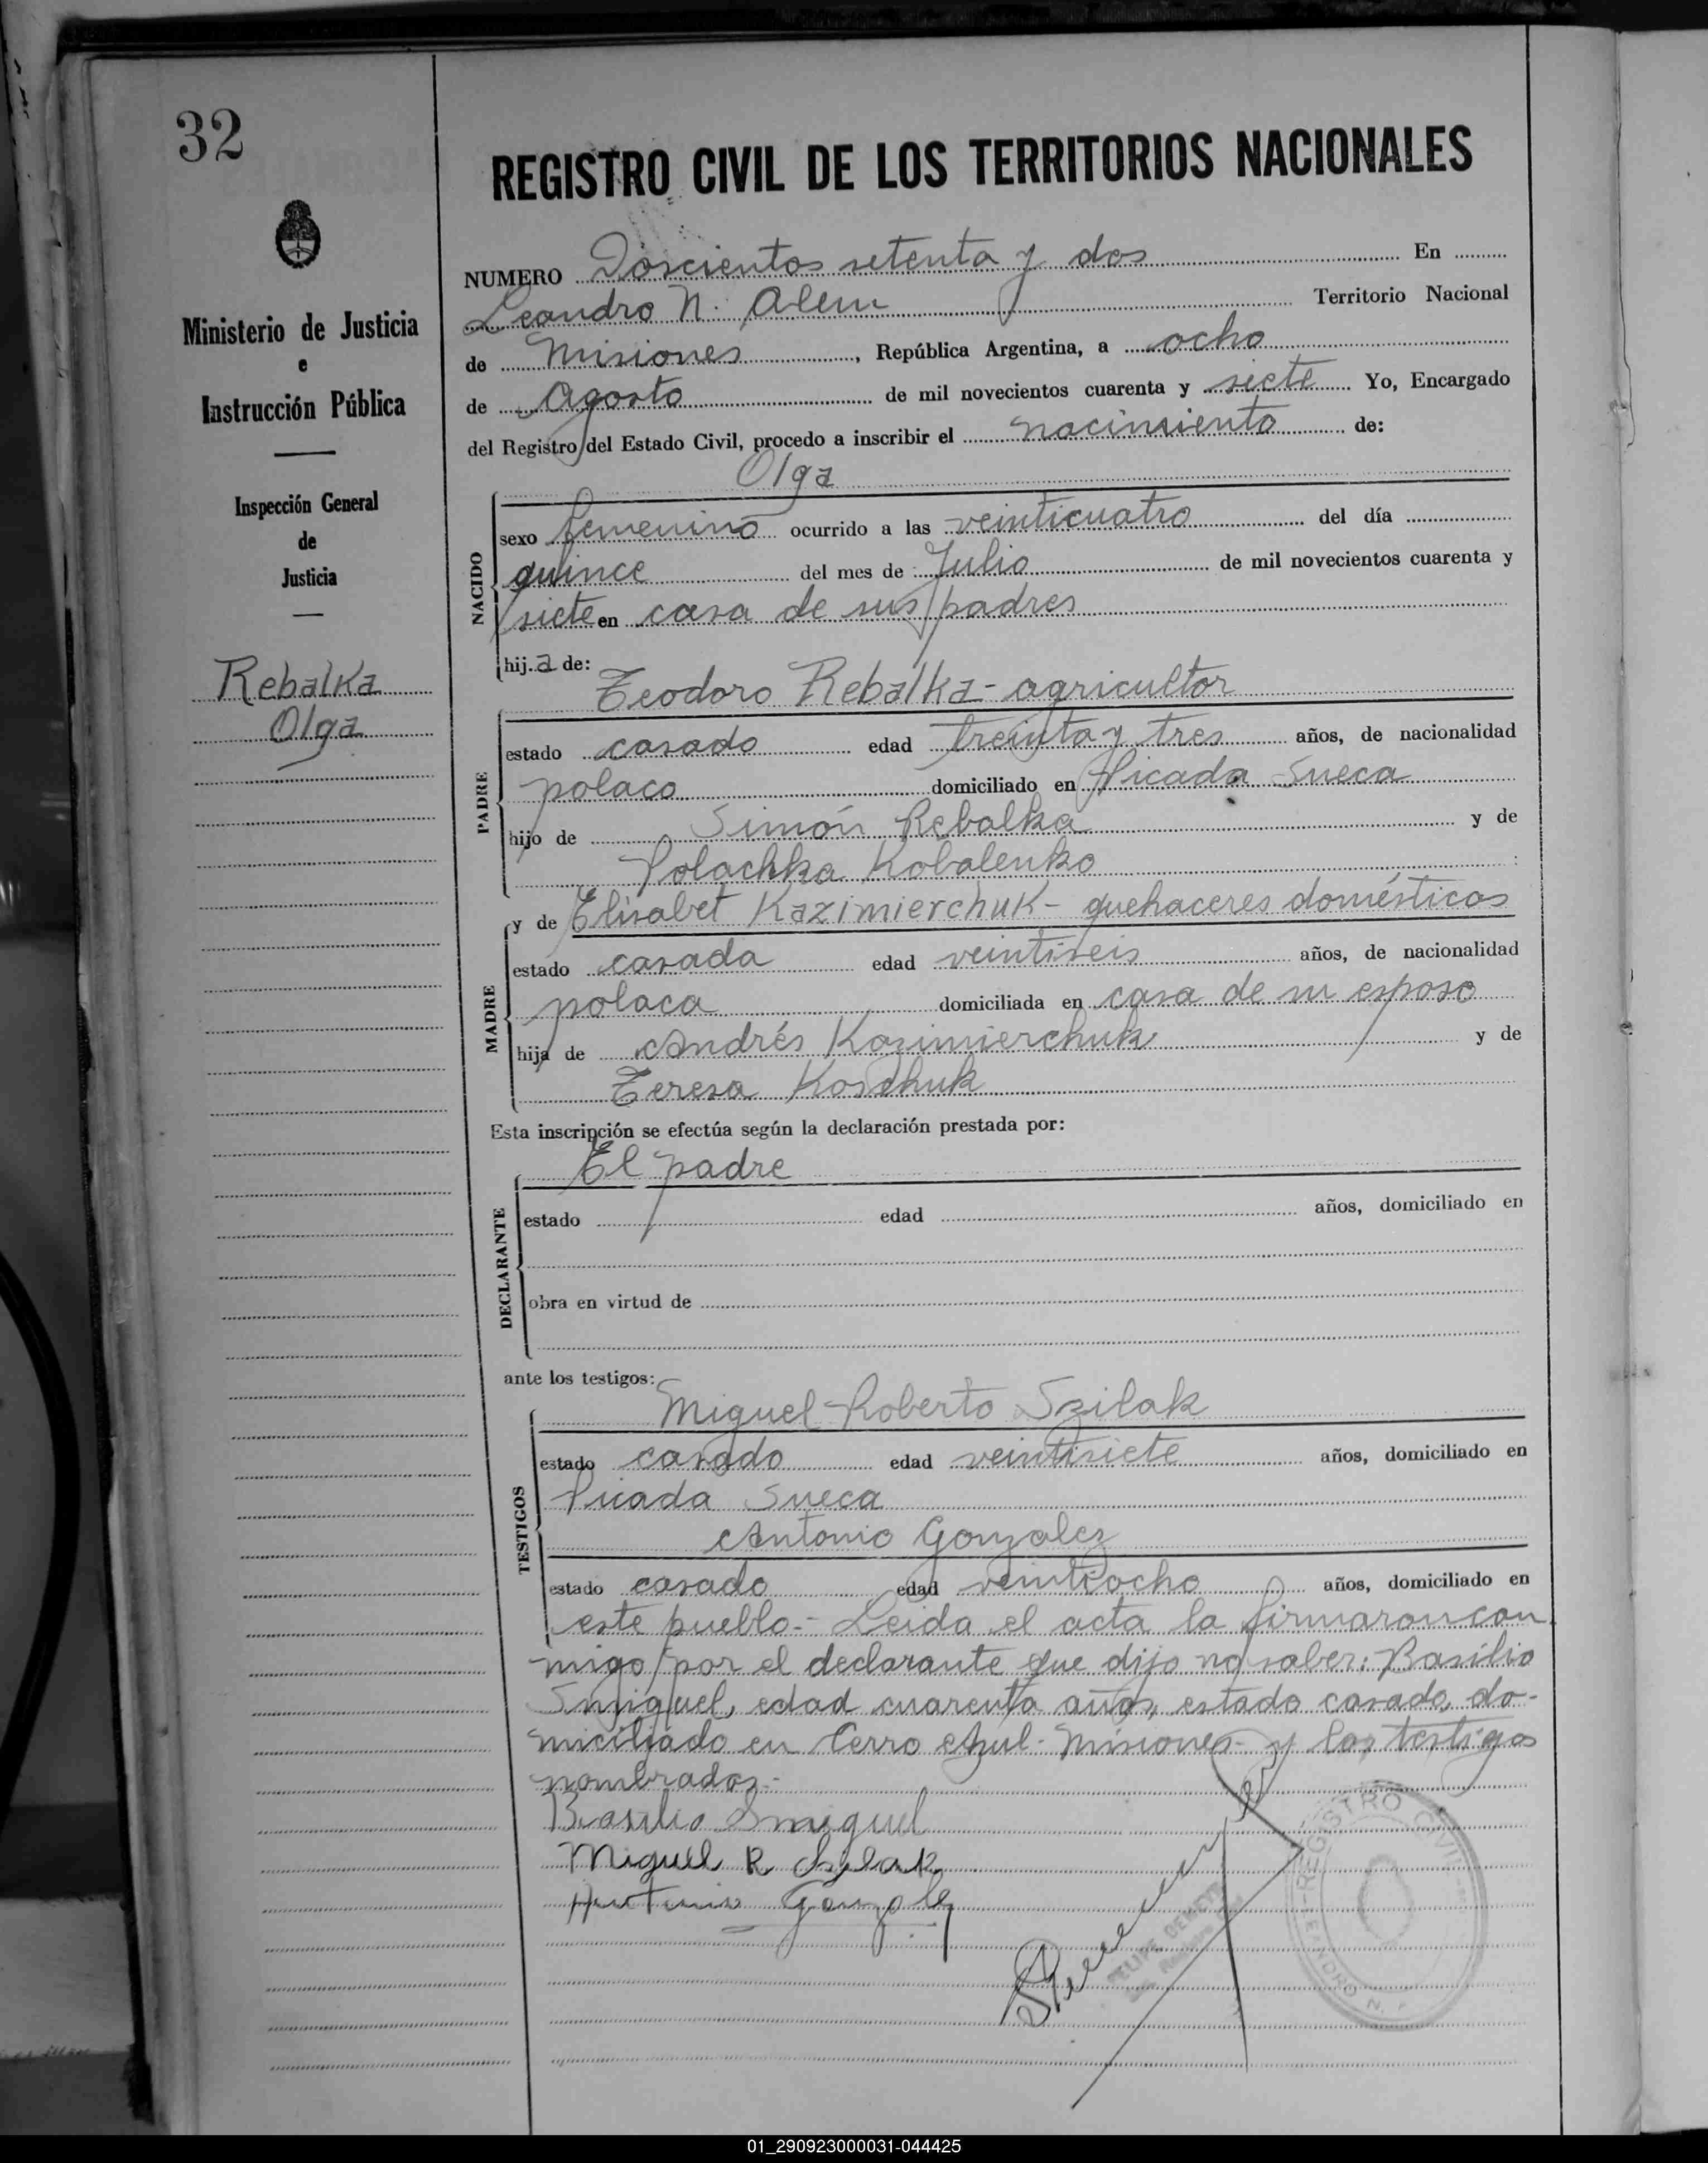 32
REGISTRO CIVIL DE LOS TERRITORIOS NACIONALES
Ministerio de Justicia
e
Instrucción Pública
Inspección General
de
Justicia
Rebalka
Olga
NUMERO Doscientos setenta y dos En
Leandro N. Alem Territorio Nacional
de Misiones, República Argentina, a ocho
de Agosto de mil novecientos cuarenta y siete Yo, Encargado
del Registro del Estado Civil, procedo a inscribir el nacimiento de:
Olga
NACIDO
sexo femenino ocurrido a las veinticuatro del día
quince del mes de Julio de mil novecientos cuarenta y
siete en casa de sus padres
hij.a de:
Teodoro Rebalka - agricultor
PADRE
estado casado edad treinta y tres años, de nacionalidad
polaco domiciliado en Picada Sueca
hijo de Simón Rebalka y de
Polachka Kobalenko
y de Elisabet Kazimierchuk - quehaceres domésticos
MADRE
estado casada edad veintiseis años, de nacionalidad
polaca domiciliada en casa de su esposo
hija de Andrés Kazimierchuk y de
Teresa Koschuk
Esta inscripción se efectúa según la declaración prestada por:
El padre
DECLARANTE
estado edad años, domiciliado en
obra en virtud de
ante los testigos:
Miguel Roberto Szilak
TESTIGOS
estado casado edad veintisiete años, domiciliado en
Picada Sueca
Antonio Gonzalez
estado casado edad veintiocho años, domiciliado en
este pueblo.- Leida el acta la firmaron con
migo por el declarante que dijo no saber: Basilio
Smiguel, edad cuarenta años, estado casado, do-
miciliado en Cerro Azul - Misiones - y los testigos
nombrados.-
Basilio Smiguel
Miguel R Szilak
Antonio Gonzalez
REGISTRO CIVIL
LEANDRO N.
01_290923000031-044425